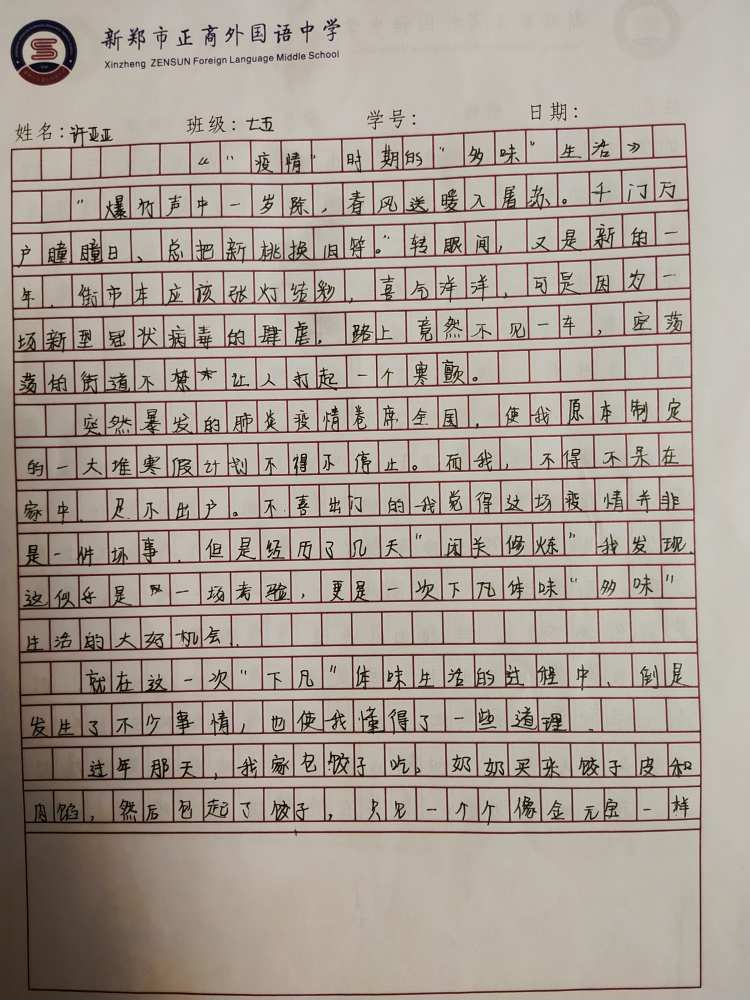 新郑市正商外国语中学
Xinzheng ZENSUN Foreign Language Middle School
姓名:许亚亚 班级:七五 学号: 日期:
《“疫情”时期的“多味”生活》
“爆竹声中一岁除,春风送暖入屠苏。千门万
户瞳瞳日、总把新桃换旧符。”转眼间,又是新的一
年.街市本应该张灯结彩,喜气洋洋,可是因为一
场新型冠状病毒的肆虐.路上竟然不见一车,空荡
荡的街道不禁让人打起一个寒颤。
突然暴发的肺炎疫情卷席全国,使我原本制定
的一大堆寒假计划不得不停止。而我,不得不呆在
家中.足不出户。不喜出门的我觉得这场疫情并非
是一件坏事.但是经历了几天“闭关修炼”我发现.
这似乎是一场考验,更是一次下凡体味“多味”
生活的大好机会.
就在这一次“下凡”体味生活的过程中,倒是
发生了不少事情,也使我懂得了一些道理.
过年那天,我家包饺子吃。奶奶买来饺子皮和
肉馅,然后包起了饺子,只见一个个像金元宝一样